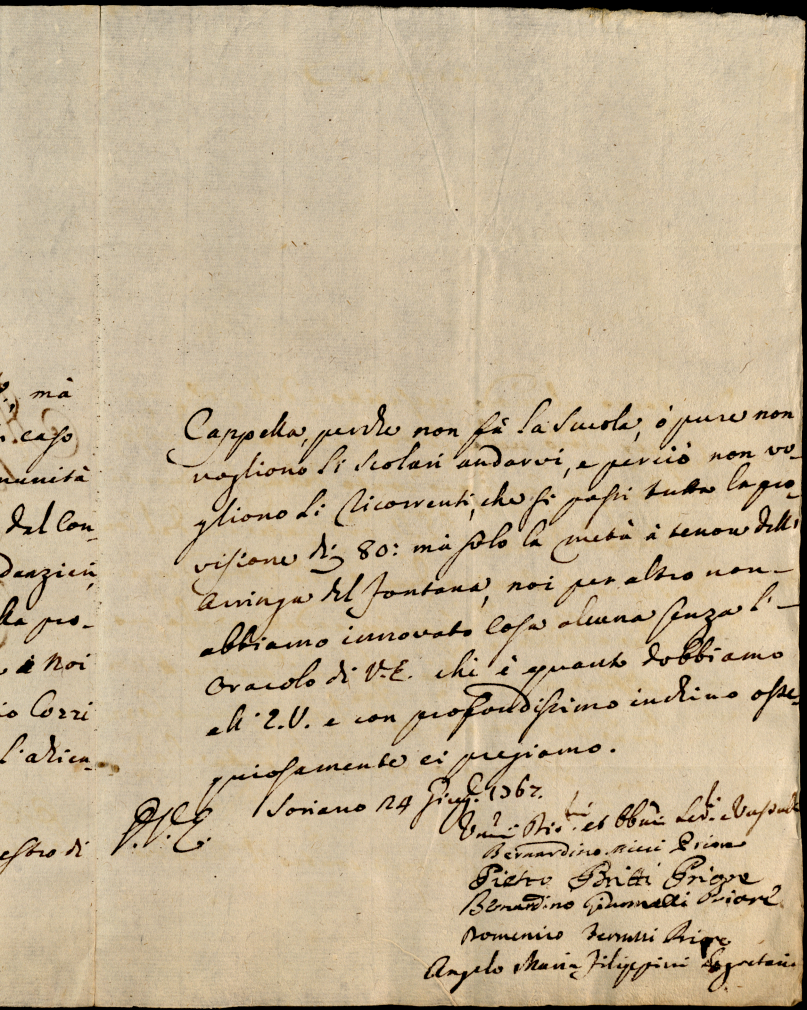 mà
caso
munità
dal Con-
danzieri
lla pro-
à noi
io Cozzi
l'adien-
estro di
Cappella, perche non fà la Scuola, ò pure non
vogliono li Scolari andarvi, e perciò non vo-
gliono li Ricorrenti, che si passi tutta la pro-
visione di 80: mà solo la metà à tenore dell'
Arringa del Fontana, noi per altro non
abbiamo innovato Cosa alcuna senza l'
Oracolo di V.E. chi è quanto dobbiamo
all' E.V. e con profondissimo inchino osse-
quiosamente ci pregiamo.
Soriano 24 Giug. 1767.
D.V.E.
Bernardino Ricci Priore
Pietro Britti Priore
Bernardino Priore
Domenico Priore
Angelo Maria Filippini Segretario